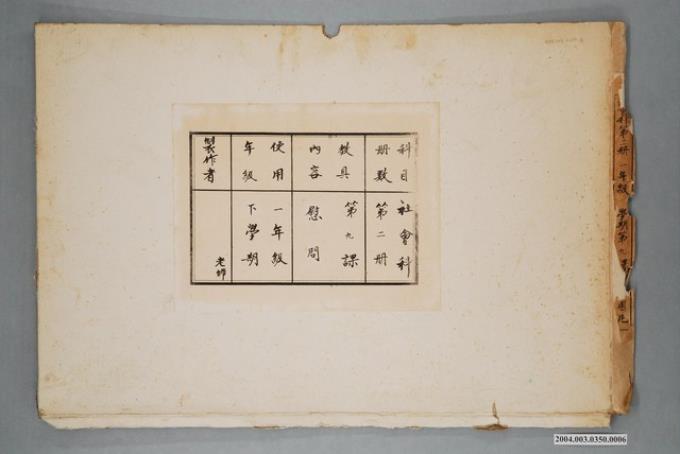 科目 社會科
冊數 第二冊
教具 第九課
內容 慰問
使用 一年級
年級 下學期
製作者 老師
第二冊 一年級 學期第九課
2004.003.0350.0006